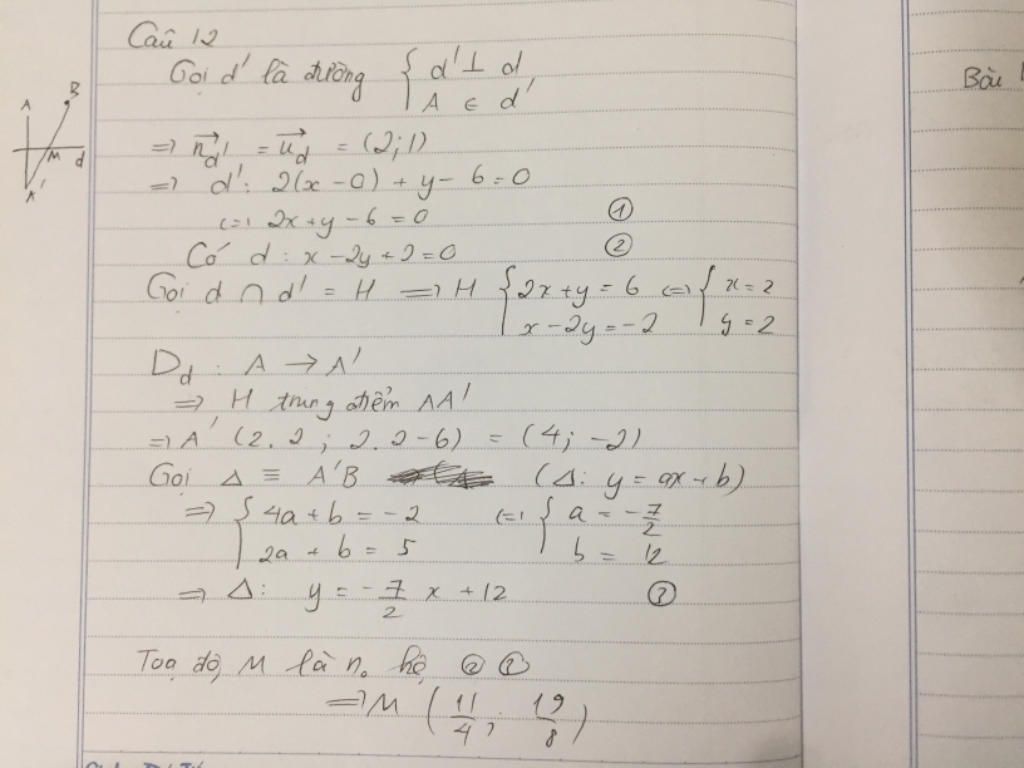 Câu 12
Gọi d' là đường { d' ⊥ d, A ∈ d'
⇒ n⃗d' = u⃗d = (2;1)
⇒ d': 2(x - 0) + y - 6 = 0
⇔ 2x + y - 6 = 0 ①
Có d : x - 2y + 2 = 0 ②
Gọi d ∩ d' = H ⇒ H { 2x + y = 6, x - 2y = -2 ⇔ { x = 2, y = 2
Dd : A → A'
⇒ H trung điểm AA'
⇒ A' (2.2 ; 2.2 - 6) = (4; -2)
Gọi Δ ≡ A'B (Δ: y = ax + b)
⇒ { 4a + b = -2, 2a + b = 5 ⇔ { a = -7/2, b = 12
⇒ Δ: y = -7/2 x + 12 ③
Toạ độ M là n₀ hệ ②
⇒ M (11/4; 19/8)
A
B
M
d
A'
Bài